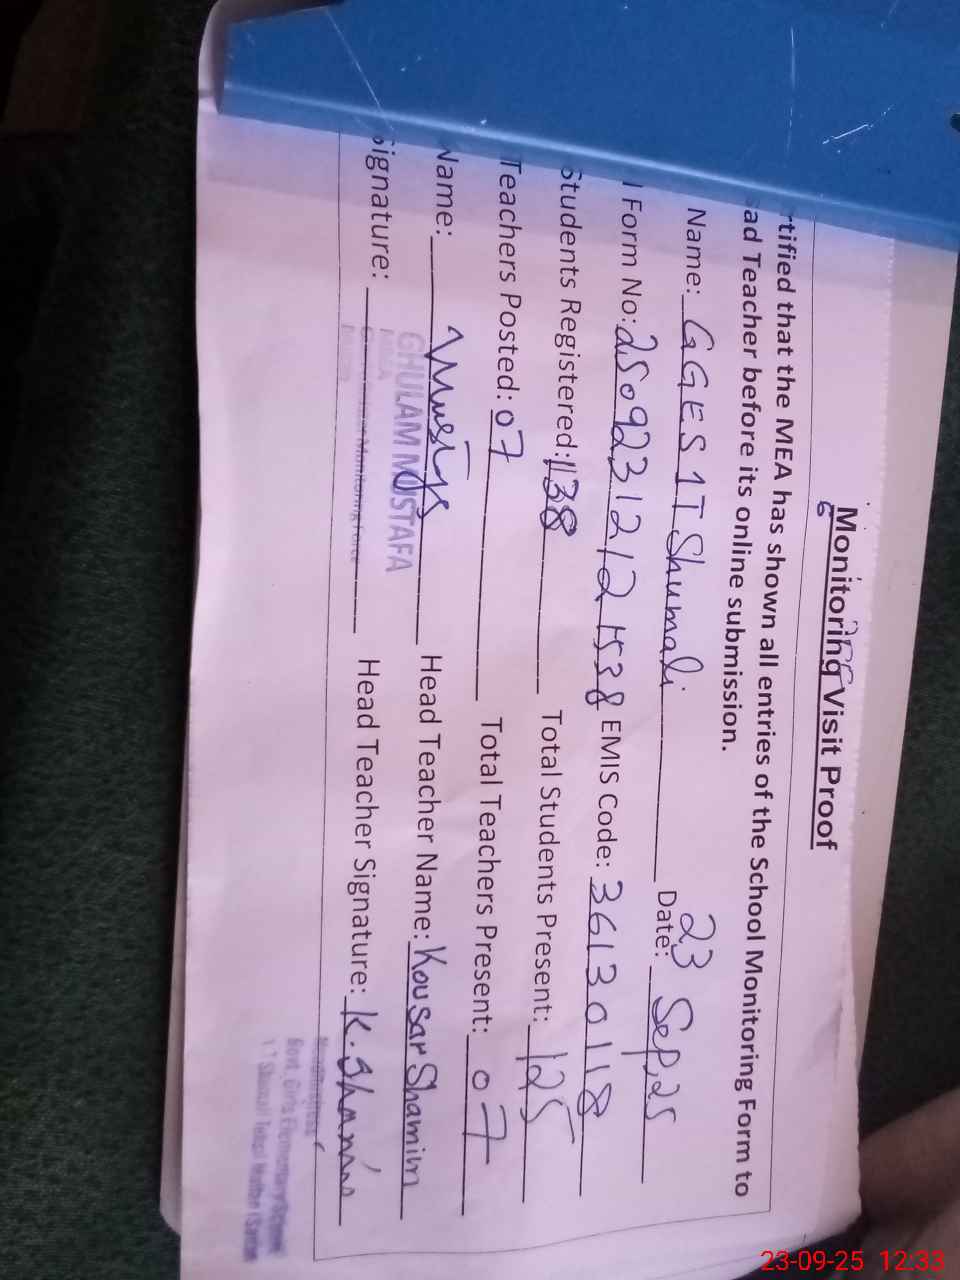 Monitoring Visit Proof
rtified that the MEA has shown all entries of the School Monitoring Form to
ad Teacher before its online submission.
Name: GGES 1T Shumali Date: 23 Sep, 25
l Form No: 25092312121538 EMIS Code: 36130118
Students Registered: 138 Total Students Present: 125
Teachers Posted: 07 Total Teachers Present: 07
Name: Head Teacher Name: Kousar Shamim
GHULAM MUSTAFA
MEA
Monitoring Force
Signature: Head Teacher Signature: K. Shamim
Headmistress
Govt. Girls Elementary School
23-09-25 12:33